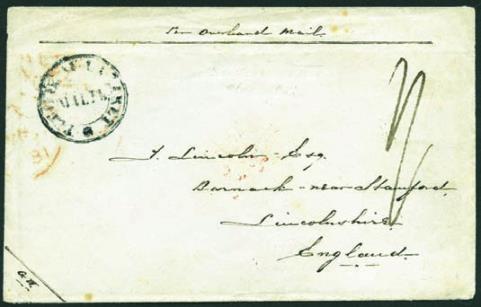 Per Overland Mail.
MALTA
1/
J. Lincoln - Esq
Barnack - near Stamford.
Lincolnshire
England.